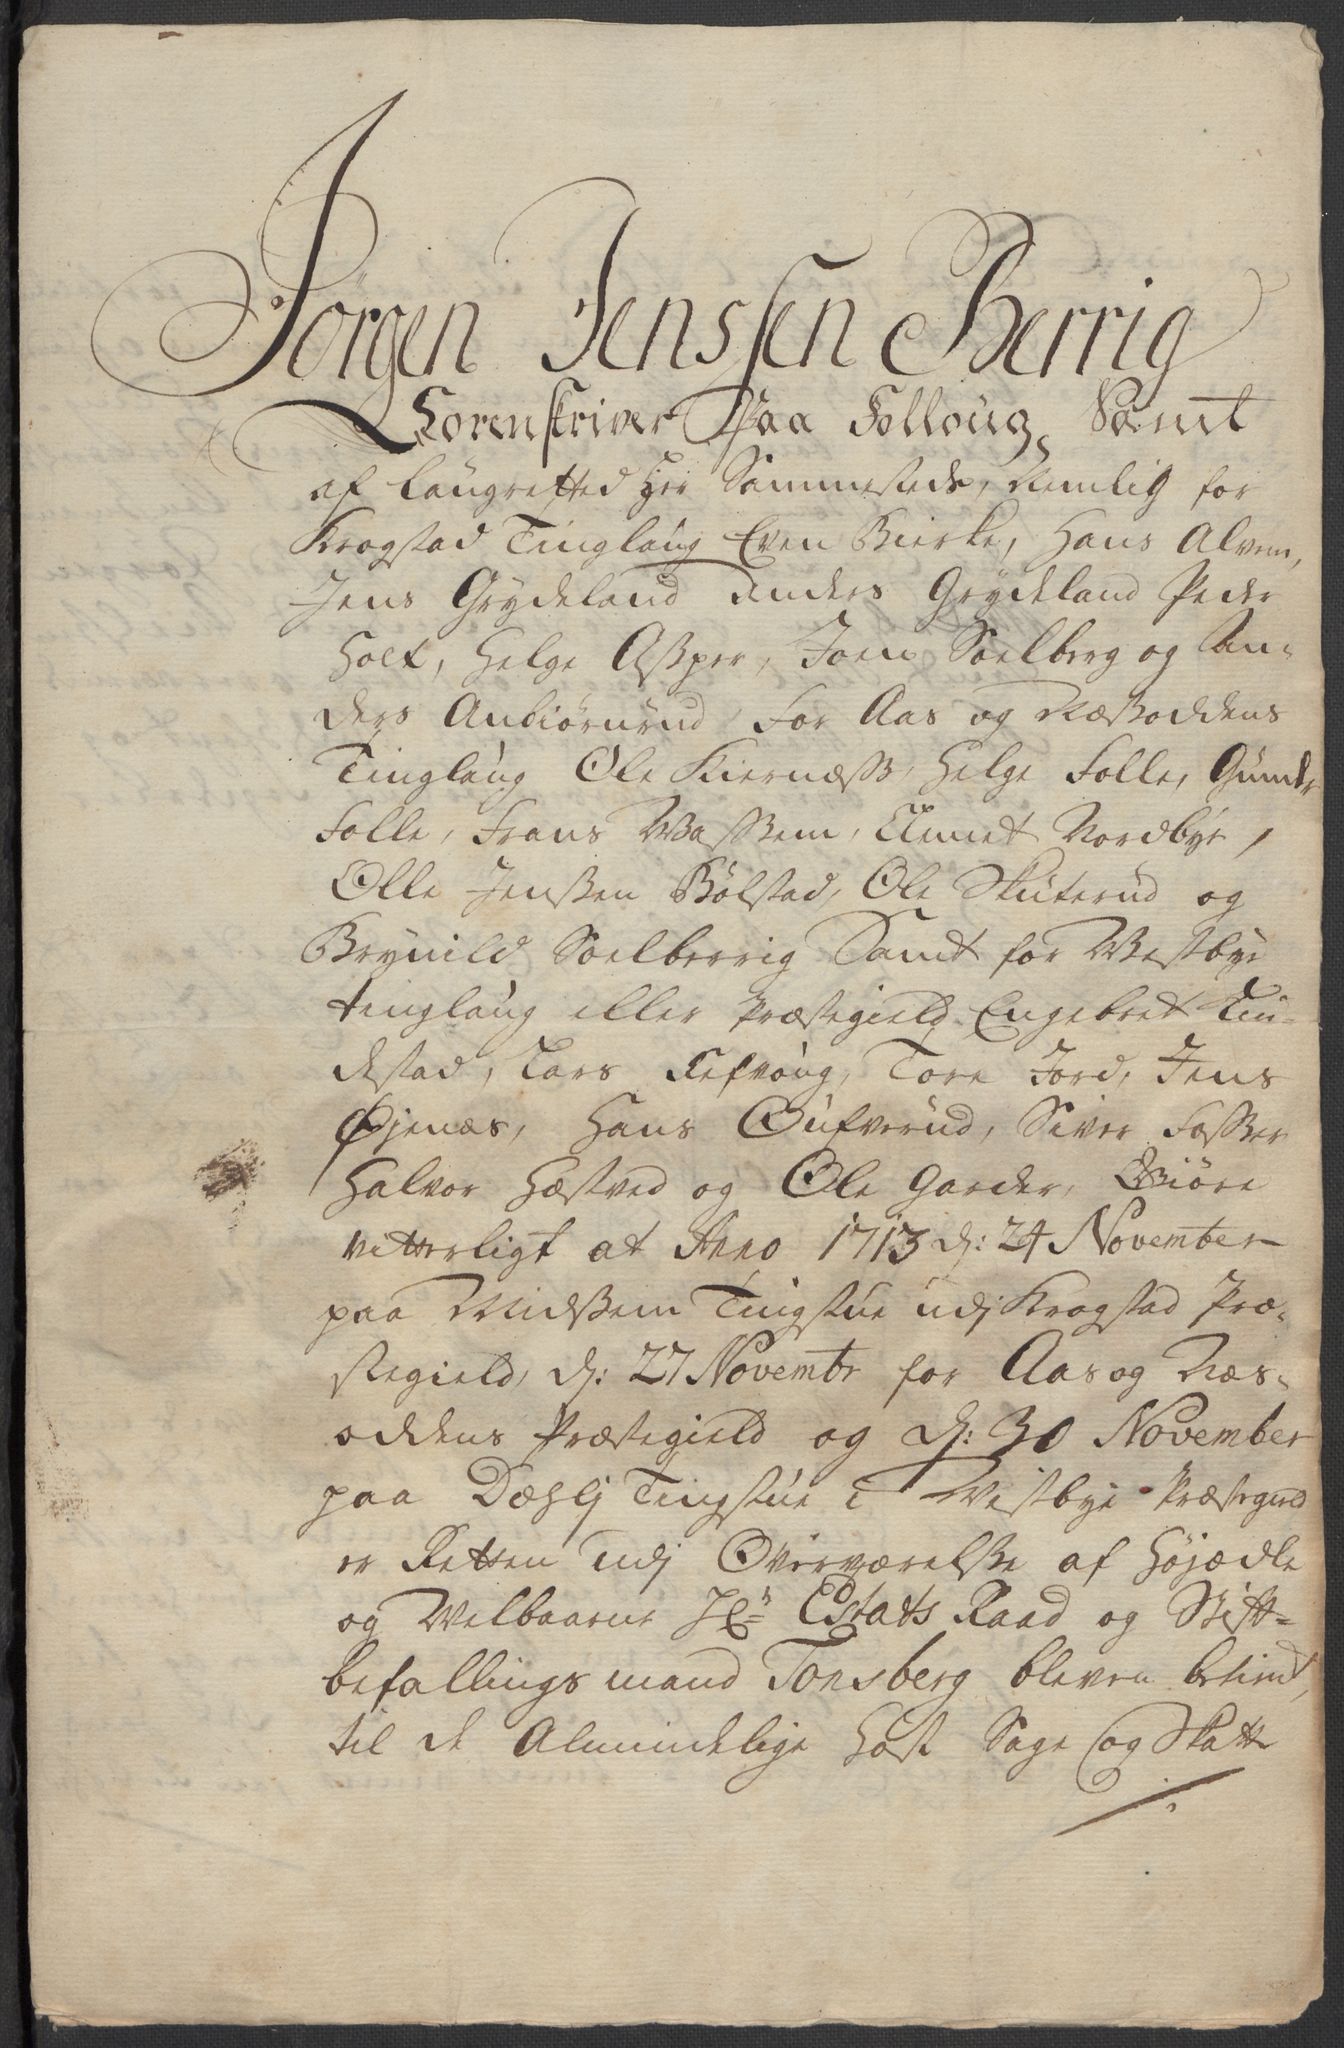 Jörgen Jenssen Berrig
Sorenskriver Paa Folloug, Samt
af Laugretted her Sammesteds, Nemlig for
Krogstad Tinglaug Even Bierke, Hans Alvem,
Jens Grydeland Anders Grydeland Peder
Holt, Helge Asper, Joen Soelberg og An-
ders Anbiørnrud, for Aas og Næsoddens
Tinglaug Ole Kiernæss, Helge Folle, Gunder
Folle, Frans Wassem, Clemet Nordbye,
Olle Jenssen Bølstad, Ole Skuterud og
Brynild Soelberrig Samt for Westbye
tinglaug eller Præstegield Engebret
destad, Lars Refvoug, Tore Jord, Jens
Øjenæs, Hans Gufverud, Siver Fosser
Halvor Hæstved og Ole Garder, Giöre
vitterligt at Anno 1713 d: 24 November
paa Midssem Tingstue udj Krogstad Præ-
stegield, d: 27 Novembr for Aas og Næs-
oddens Præstegield og d: 30 November
paa Dæhlj Tingstue i Westbye Præstegield
er Retten udj Overværelsse af Højædle
og Velbaarne Hr Estats Raad og Stift-
befallings mand Tonsberg bleven betient,
til de Almindelige Høst Sage og Skatte